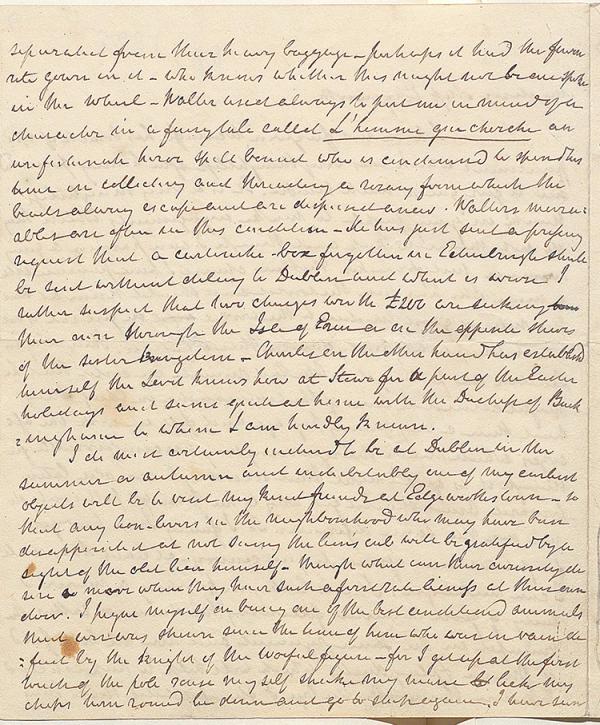 separated from their heavy baggage - perhaps it had the favou
rite gown in it - who knows whether this might not be one spoke
in the wheel - Walter used always to put me in mind of a
character in a fairy tale called L'homme qui cherche an
unfortunate hero spell bound who is condemned to spend his
time in collecting and threading a rosary from which the
beads always escape and are dispersed anew. Walters movea:
:bles are often in this condition - He has just sent a pressing
request that a cartouche-box forgotten in Edinburgh should
be sent without delay to Dublin and what is worse I
rather suspect that two chargers worth £200 are seeking
their owner through the Isle of Erin or on the opposite shores
of the sister kingdom - Charles on the other hand has established
himself the Devil knows how at Stowe for a part of the Easter
holidays and seems quite at home with the Duchess of Buck
:ingham to whom I am hardly known.
I do most certainly intend to be at Dublin in the
summer or autumn and undoubtedly one of my earliest
objects will be to visit my kind friends at Edgeworthstown - so
that any lion-lovers in the neighbourhood who may have been
disappointed at not seeing the lion's cub will be gratified by a
sight of the old lion himself - though what can their curiosity de
sire more when they have such a first rate lioness at their own
door. I pique myself on being one of the best conditioned animals
that ever was shewn since the time of him who was in vain de
:fied by the Knight of the woeful figure - for I get up at the first
touch of the pole rouse myself shake my mane lick my
chops turn round lie down and go to sleep again. I have seen